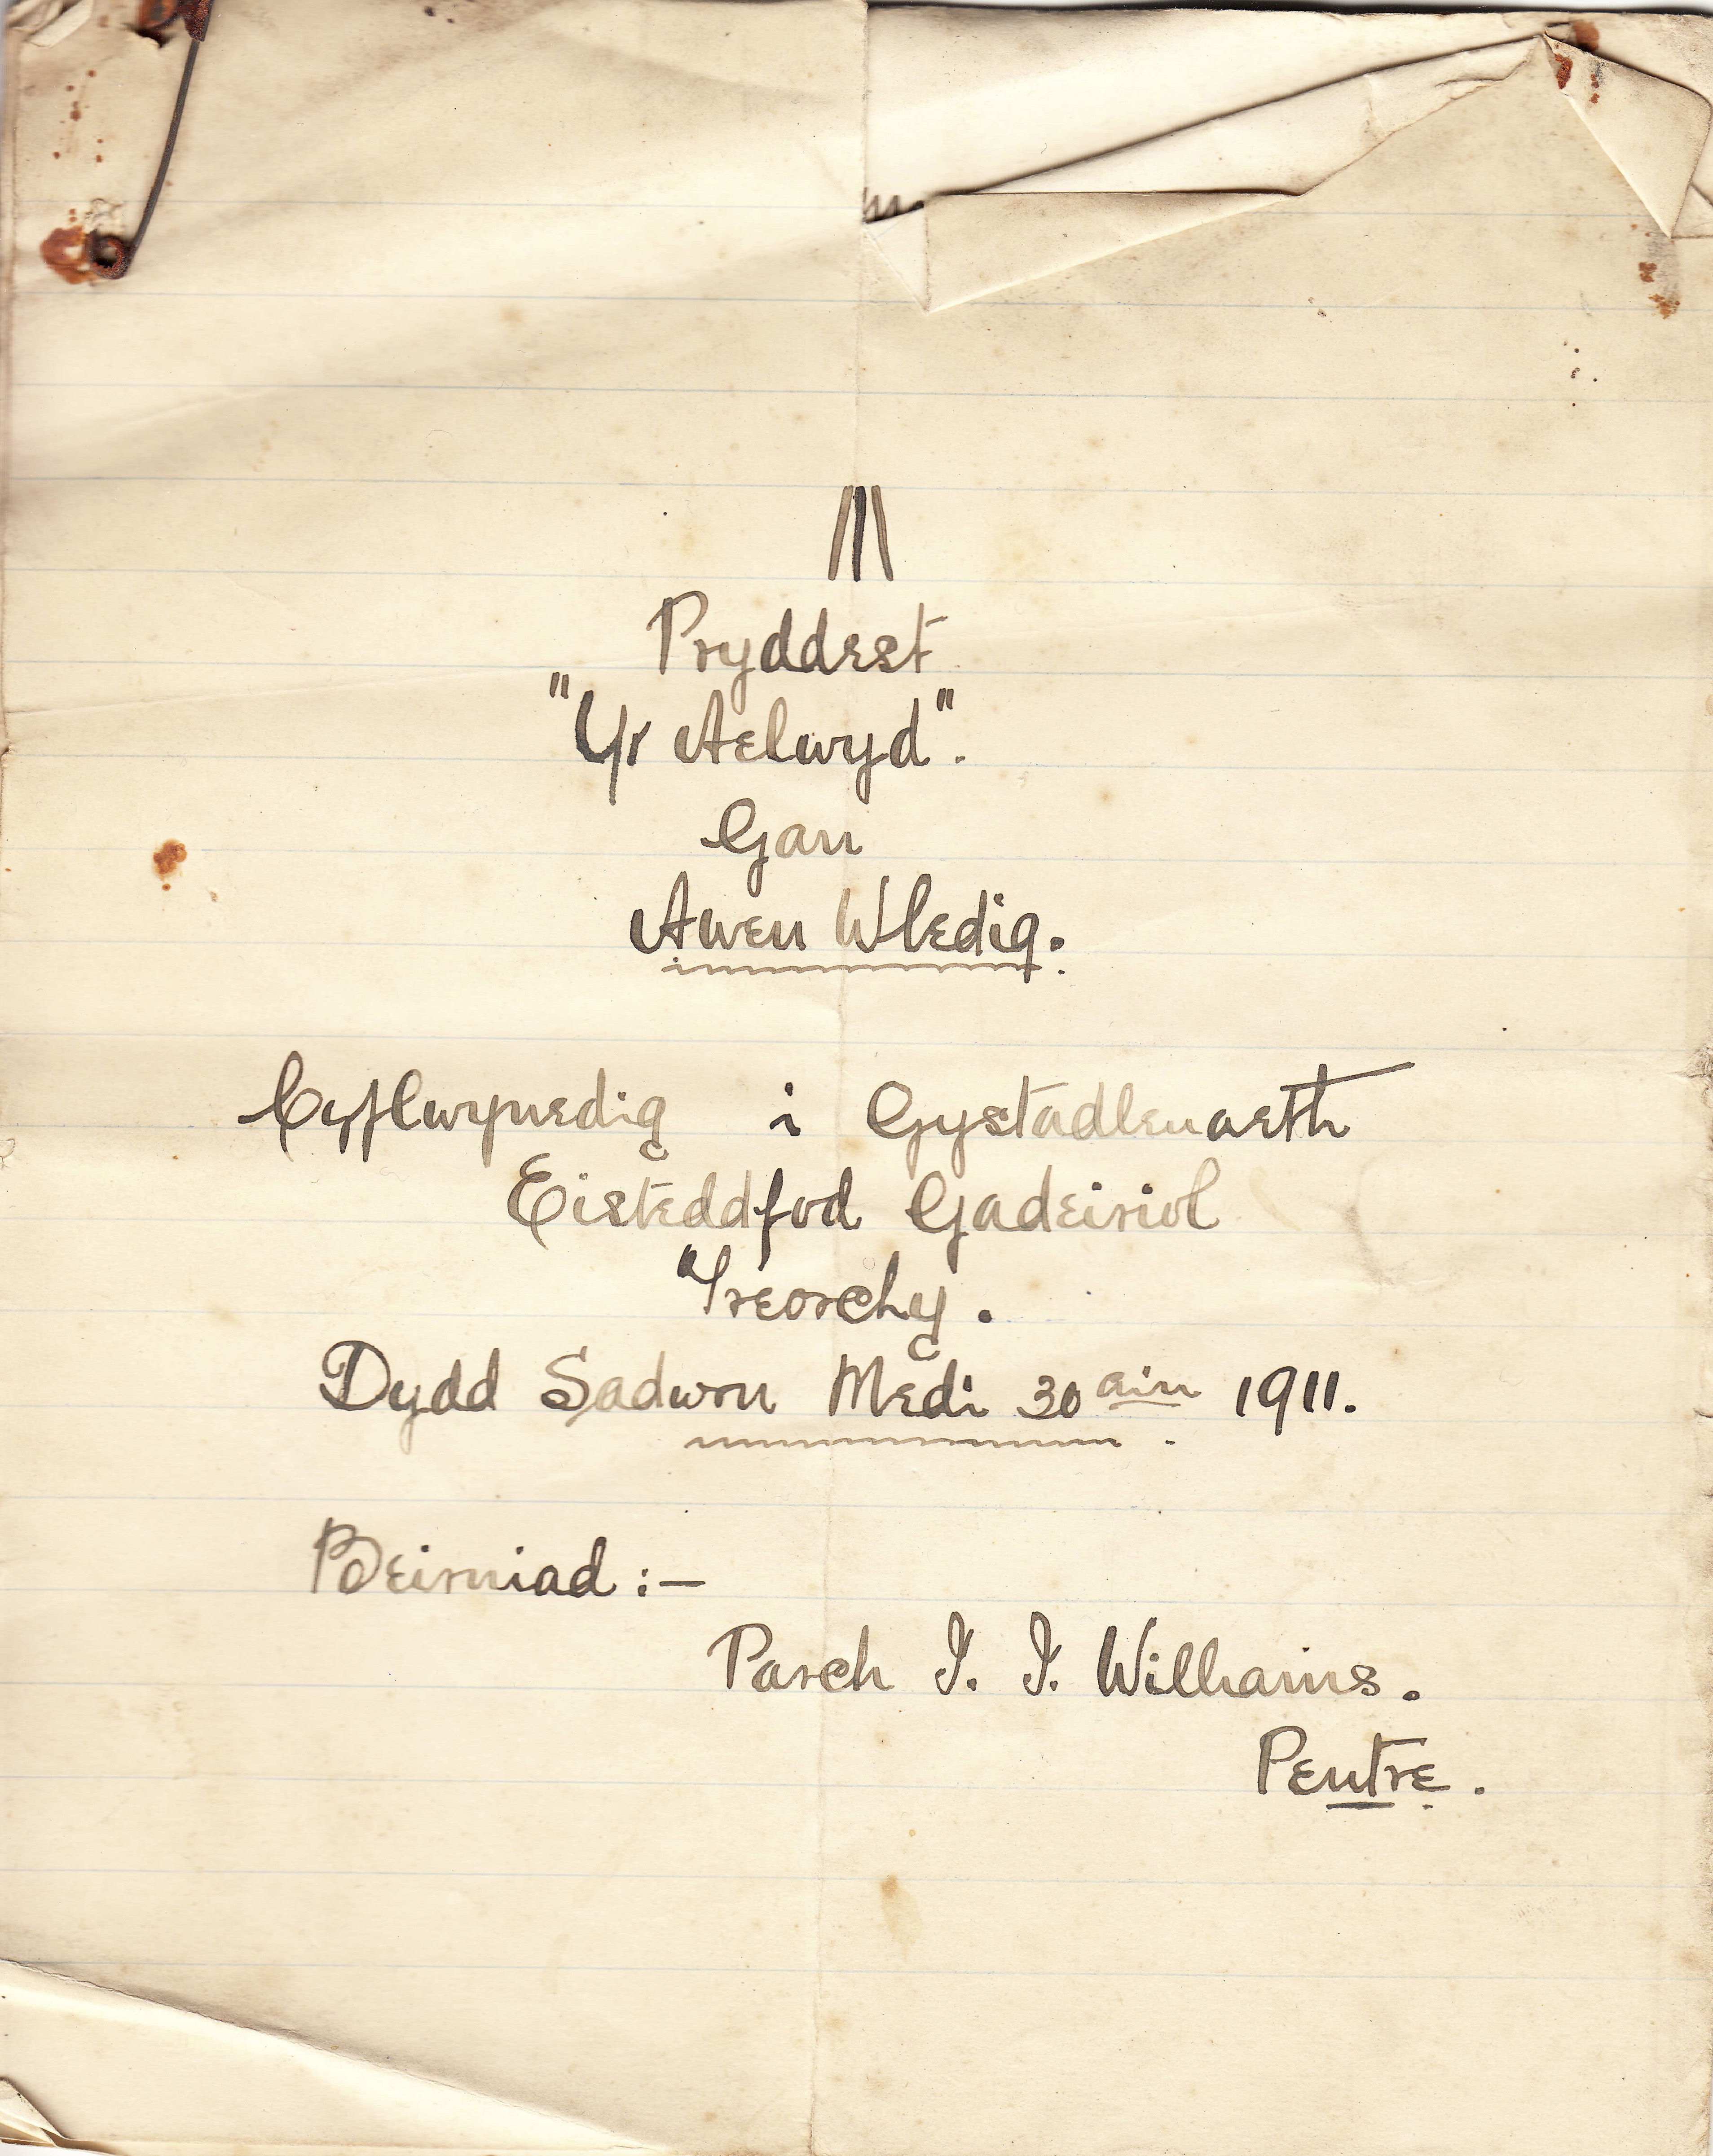 /|\
Pryddest
"Yr Aelwyd".
Gan
Awen Wledig.
Cyflwynedig i Gystadleuaeth
Eisteddfod Gadeiriol
Treorchy.
Dydd Sadwrn Medi 30 ain 1911.
Beirniad :—
Parch J. J. Williams.
Pentre.